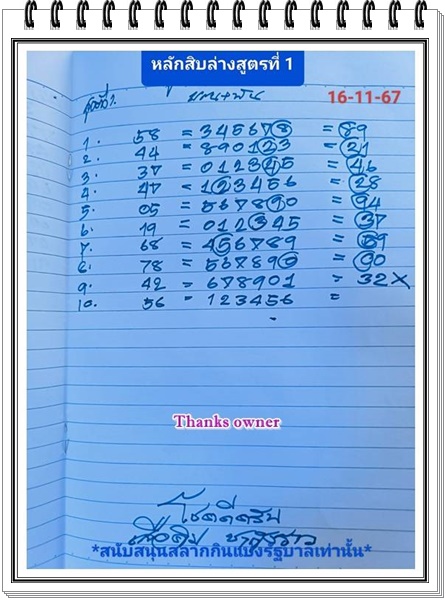 หลักสิบล่างสูตรที่ 1
สูตรที่ 1. บน+พัน 16-11-67
1. 58 = 345678 = 89
2. 44 = 890123 = 21
3. 37 = 012345 = 46
4. 47 = 123456 = 28
5. 05 = 567890 = 94
6. 19 = 012345 = 37
7. 68 = 456789 = 59
8. 78 = 567890 = 90
9. 42 = 678901 = 32 X
10. 56 = 123456 =
Thanks owner
โชคดีครับ
*สนับสนุนสลากกินแบ่งรัฐบาลเท่านั้น*